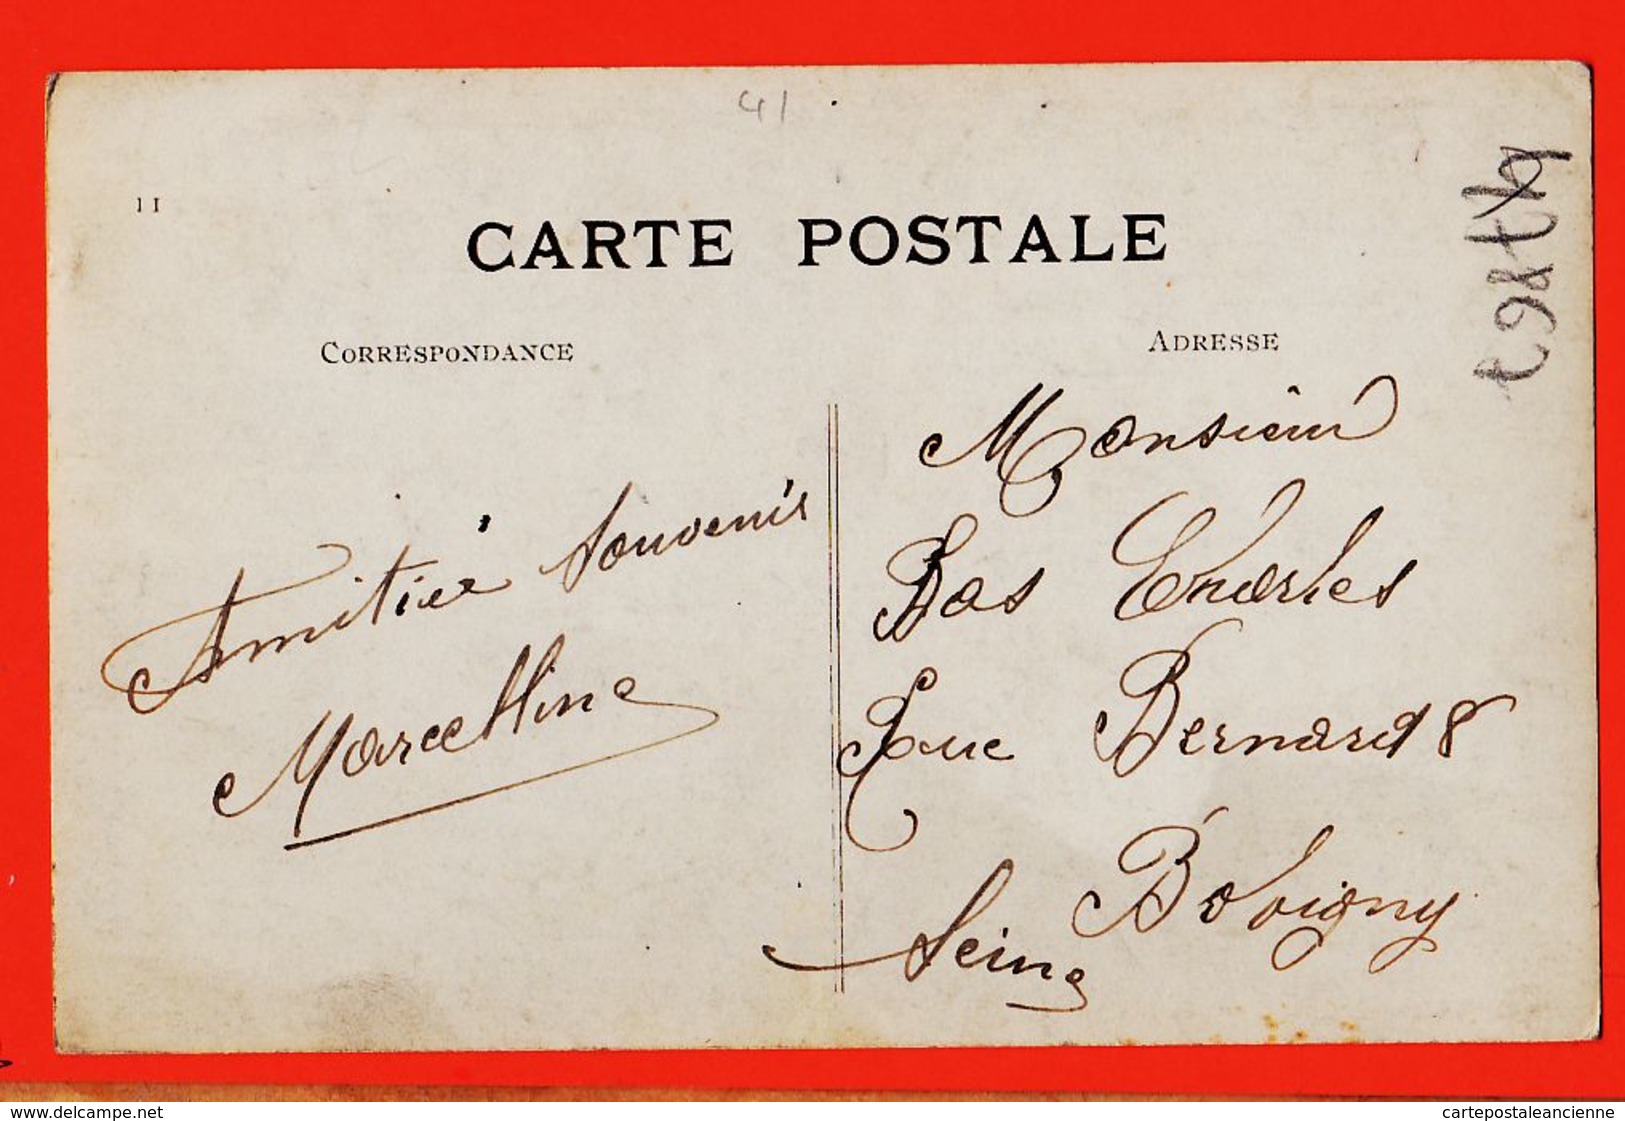 41
11
CARTE POSTALE
CORRESPONDANCE
ADRESSE
Amitié Souvenir
Marcelline
Monsieur
Bas Charles
Rue Bernard 8
Bobigny
Seine
www.delcampe.net
cartepostaleancienne